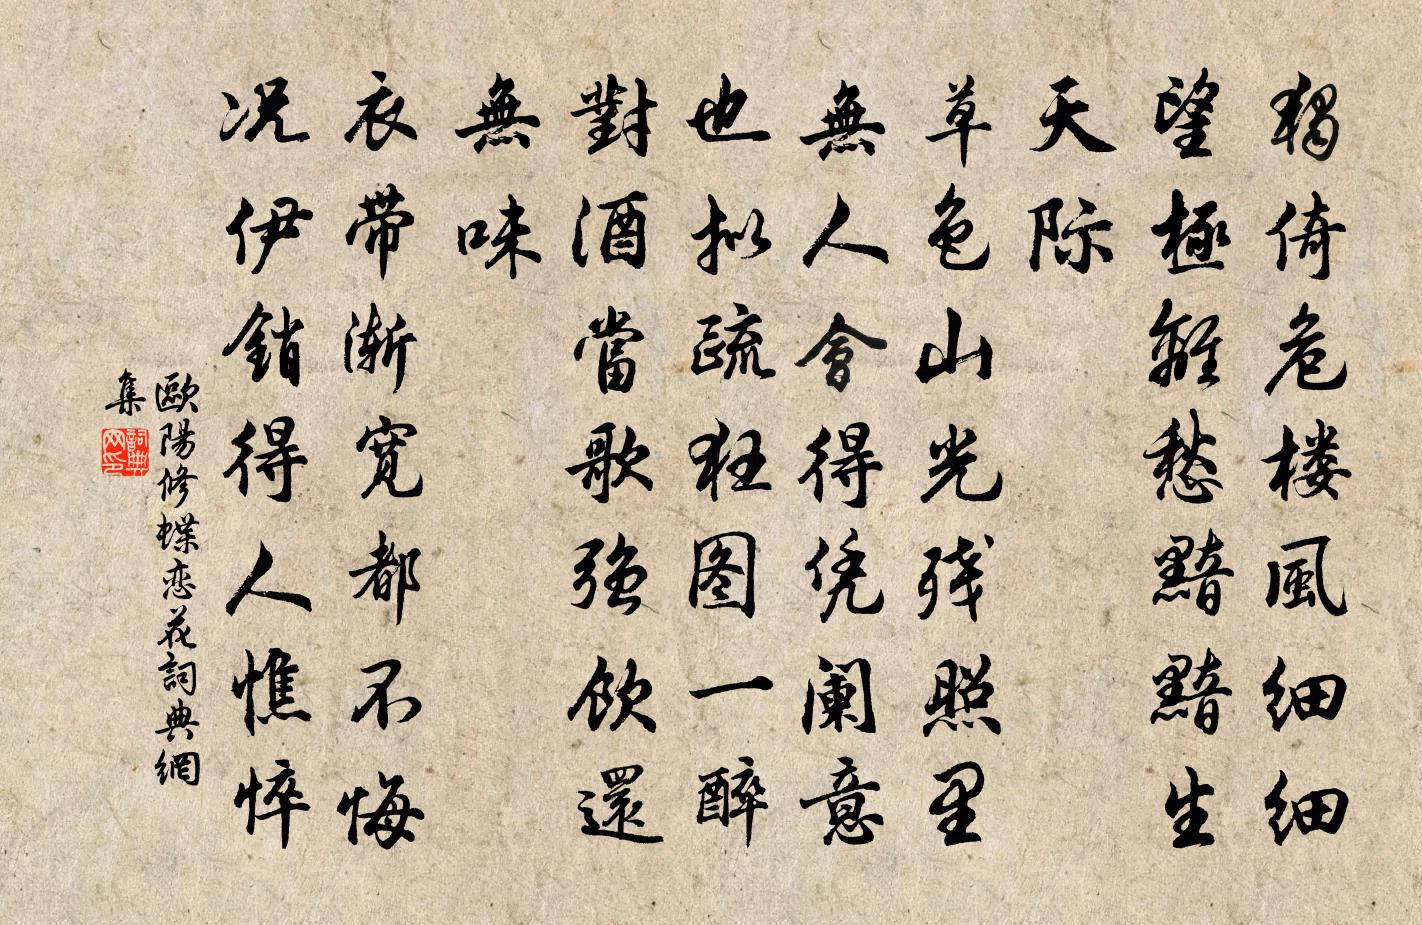 獨倚危楼風細細
望極離愁黯黯生
天际
草色山光残照里
無人會得凭阑意
也拟疏狂图一醉
對酒當歌强飲還
無味
衣带渐宽都不悔
况伊銷得人憔悴
歐陽修蝶恋花詞典網
集
詞典网印